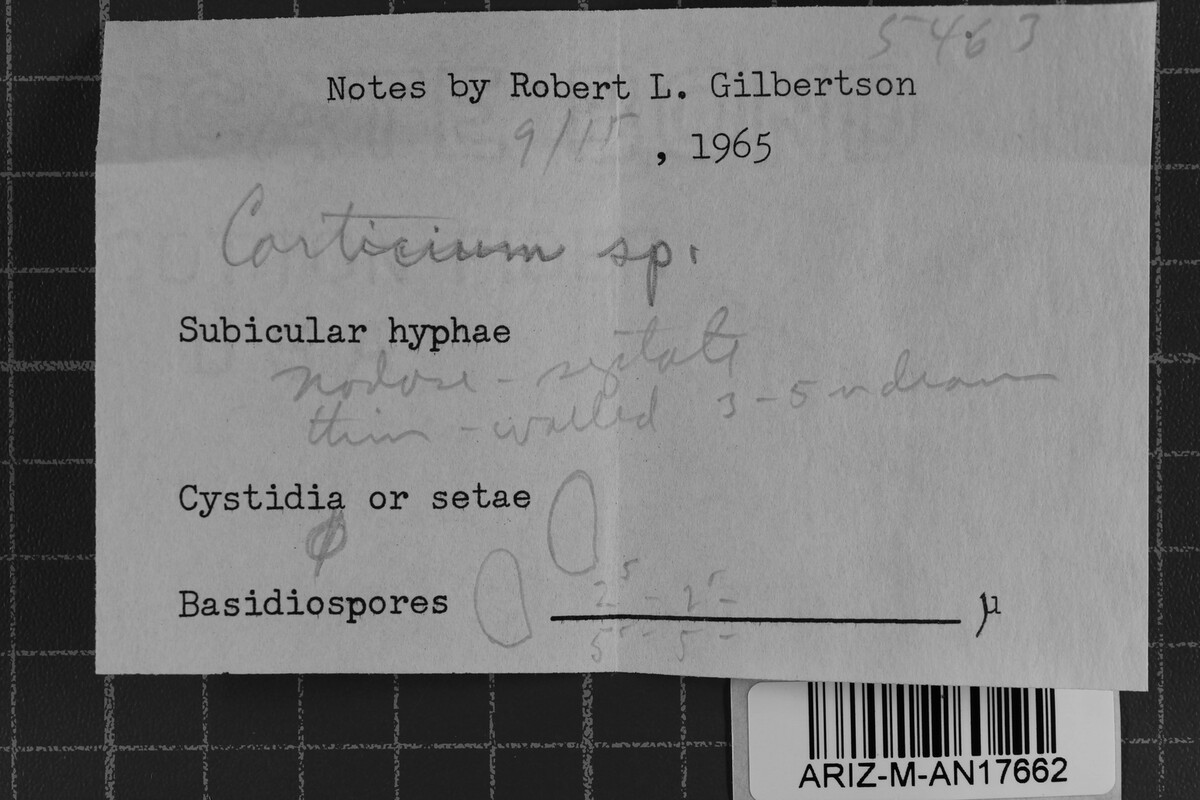 5463
Notes by Robert L. Gilbertson
9/15, 1965
Corticium sp.
Subicular hyphae
nodose-septate
thin-walled 3-5 µ diam
Cystidia or setae
ø
Basidiospores µ
2⁵- 2⁵-
5⁵- 5-
ARIZ-M-AN17662